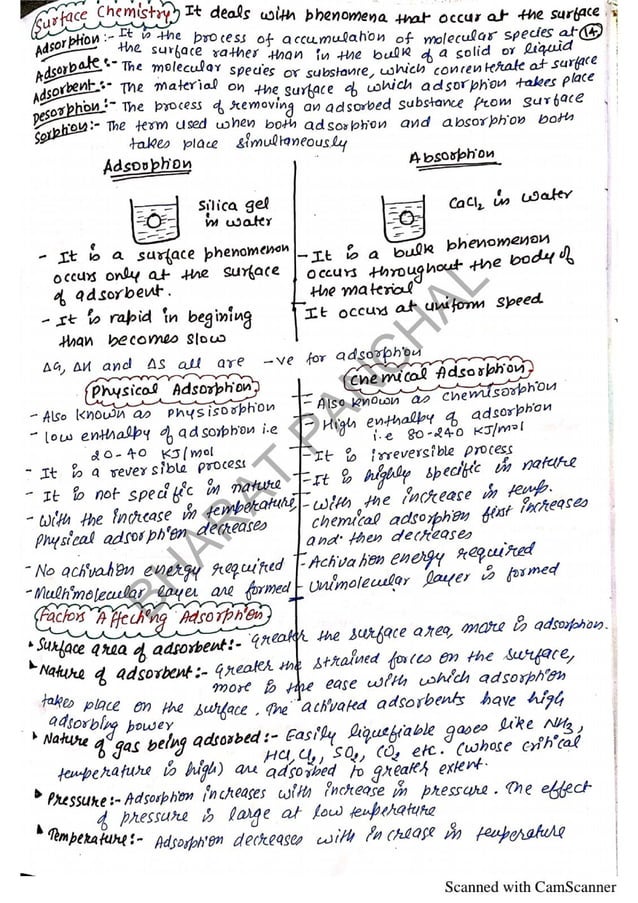 Surface Chemistry It deals with phenomena that occur at the surface
Adsorption :- It is the process of accumulation of molecular species at 14
the surface rather than in the bulk of a solid or liquid
Adsorbate :- The molecular species or substance, which concenterate at surface
Adsorbent :- The material on the surface of which adsorption takes place
Desorption :- The process of removing an adsorbed substance from surface
Sorption :- The term used when both adsorption and absorption both
takes place simultaneously
Adsorption
Silica gel
in water
- It is a surface phenomenon
occurs only at the surface
of adsorbent.
- It is rapid in begining
than becomes slow
Absorption
CaCl2 in water
- It is a bulk phenomenon
occurs throughout the body of
the material
It occurs at uniform speed
ΔG, ΔH and ΔS all are -ve for adsorption
Physical Adsorption
- Also known as physisorption
- low enthalpy of adsorption i.e
20-40 KJ/mol
- It is a reversible process
- It is not specific in nature
- With the increase in temperature
Physical adsorption decreases
- No activation energy required
- Multimolecular layer are formed
Chemical Adsorption
- Also known as chemisorption
- High enthalpy of adsorption
i.e 80-240 KJ/mol
- It is irreversible process
- It is highly specific in nature
- With the increase in temp.
chemical adsorption first increases
and then decreases
- Activation energy required
- Unimolecular layer is formed
Factors Affecting Adsorption
Surface area of adsorbent :- Greater the surface area, more is adsorption.
Nature of adsorbent :- Greater the strained forces on the surface,
more is the ease with which adsorption
takes place on the surface. The activated adsorbents have high
adsorbing power
Nature of gas being adsorbed :- Easily liquefiable gases like NH3,
HCl, Cl2, SO2, CO2 etc. (whose critical
temperature is high) are adsorbed to greater extent.
Pressure :- Adsorption increases with increase in pressure. The effect
of pressure is large at low temperature
Temperature :- Adsorption decreases with increase in temperature
BHARAT PANCHAL
Scanned with CamScanner